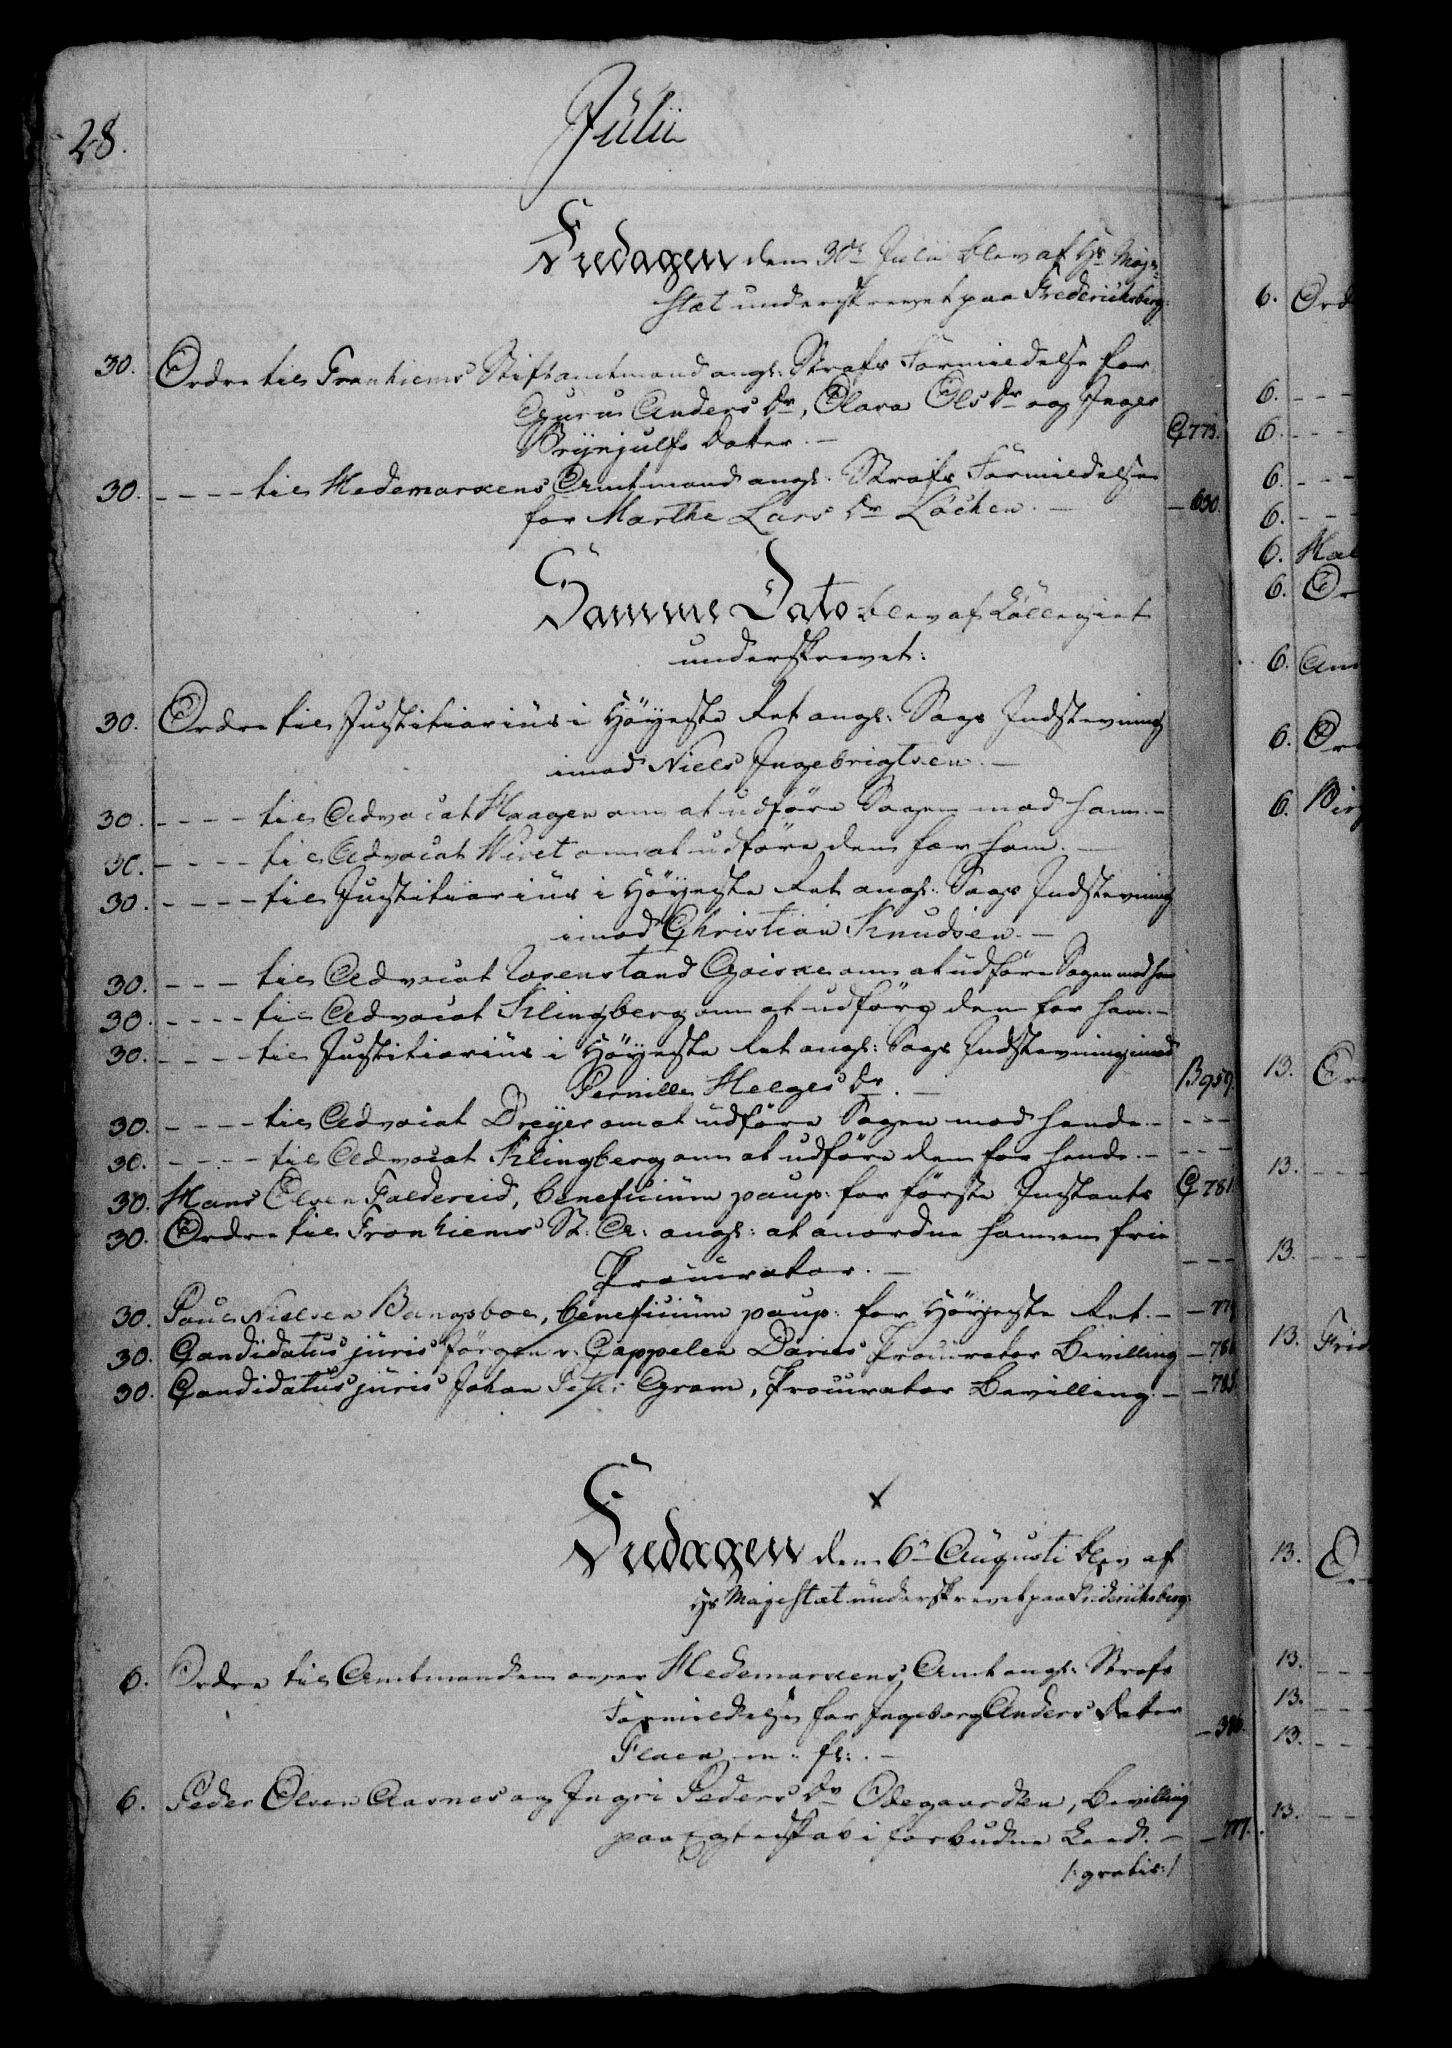 28.
Julii
Fredagen dem 30te Julii blev af Hs Maje-
stæt underskrevet paa Friderichsberg:
30. Ordre til Tronhiems Stiftamtmand angl: Strafs Formildelse for
Guru Anders Dr, Olava Ols Dr og Inger
Brynjulfs Datter. – G 773.
30. – – – – til Hedemarkens Amtmand angl: Strafs Formildelse
for Marthe Lars Dr Löchen. – – 630.
Samme Dato blev af Collegiet
underskrevet:
30. Ordre til Justitiarius i Höyeste Ret angl: Sags Indstevning
imod Niels Ingebrigtsen. –
30. – – – – til Advocat Haagen om at udföre Sagen mod ham. –
30. – – – – til Advocat Wivet om at udföre dem for ham. –
30. – – – – til Justitiarius i Höyeste Ret angl: Sags Indstevning
imod Christian Knudsen. –
30. – – – til Advocat Rosenstand Goiske om at udföre Sagen mod ham
30. – – – – til Advocat Klingberg om at udföre dem for ham. –
30. – – – – til Justitiarius i Höyeste Ret angl: Sags Indstevning imod
Pernille Helges Dr. – B 959.
30. – – – – til Advocat Dreyer om at udföre Sagen mod hende. – – – –
30. – – – – til Advocat Klingberg om at udföre dem for hende. – – – –
30. Hans Olsen Faldereid, beneficium paup: for förste Instants G 781.
30. Ordre til Tronhiems St: A: angl: at anordne hannem frie
Procurator. – – – –
30. Poul Nielsen Bangsboe, beneficium paup: for Höyeste Ret. –
30. Candidatus juris Jörgen v: Cappelen Procurator Bevilling –
30. Candidatus juris Johan Gram, Procurator Bevilling. –
Fredagen dem 6te Augusti blev af
Hs Majestæt underskrevet paa Friderichsberg:
6. Ordre til Amtmanden over Hedemarkens Amt angl: Strafs
Formildelse for Ingeborg Anders Datter
m: fl: . –
6. Peder Olsen Aasnes og Ingri Peders Dr Ödegaarden, Bevilling
paa Egteskab i forbudne Leed. – – 777.
/: gratis:/
6. Ord
6. – – –
6. – – –
6. – – –
6. – – –
6.
6. Or
6.
6. Or
6.
13.
13. – – –
13. – – –
13. Frid
13.
13. – – –
13. – – –
13. – – –
13. – – –